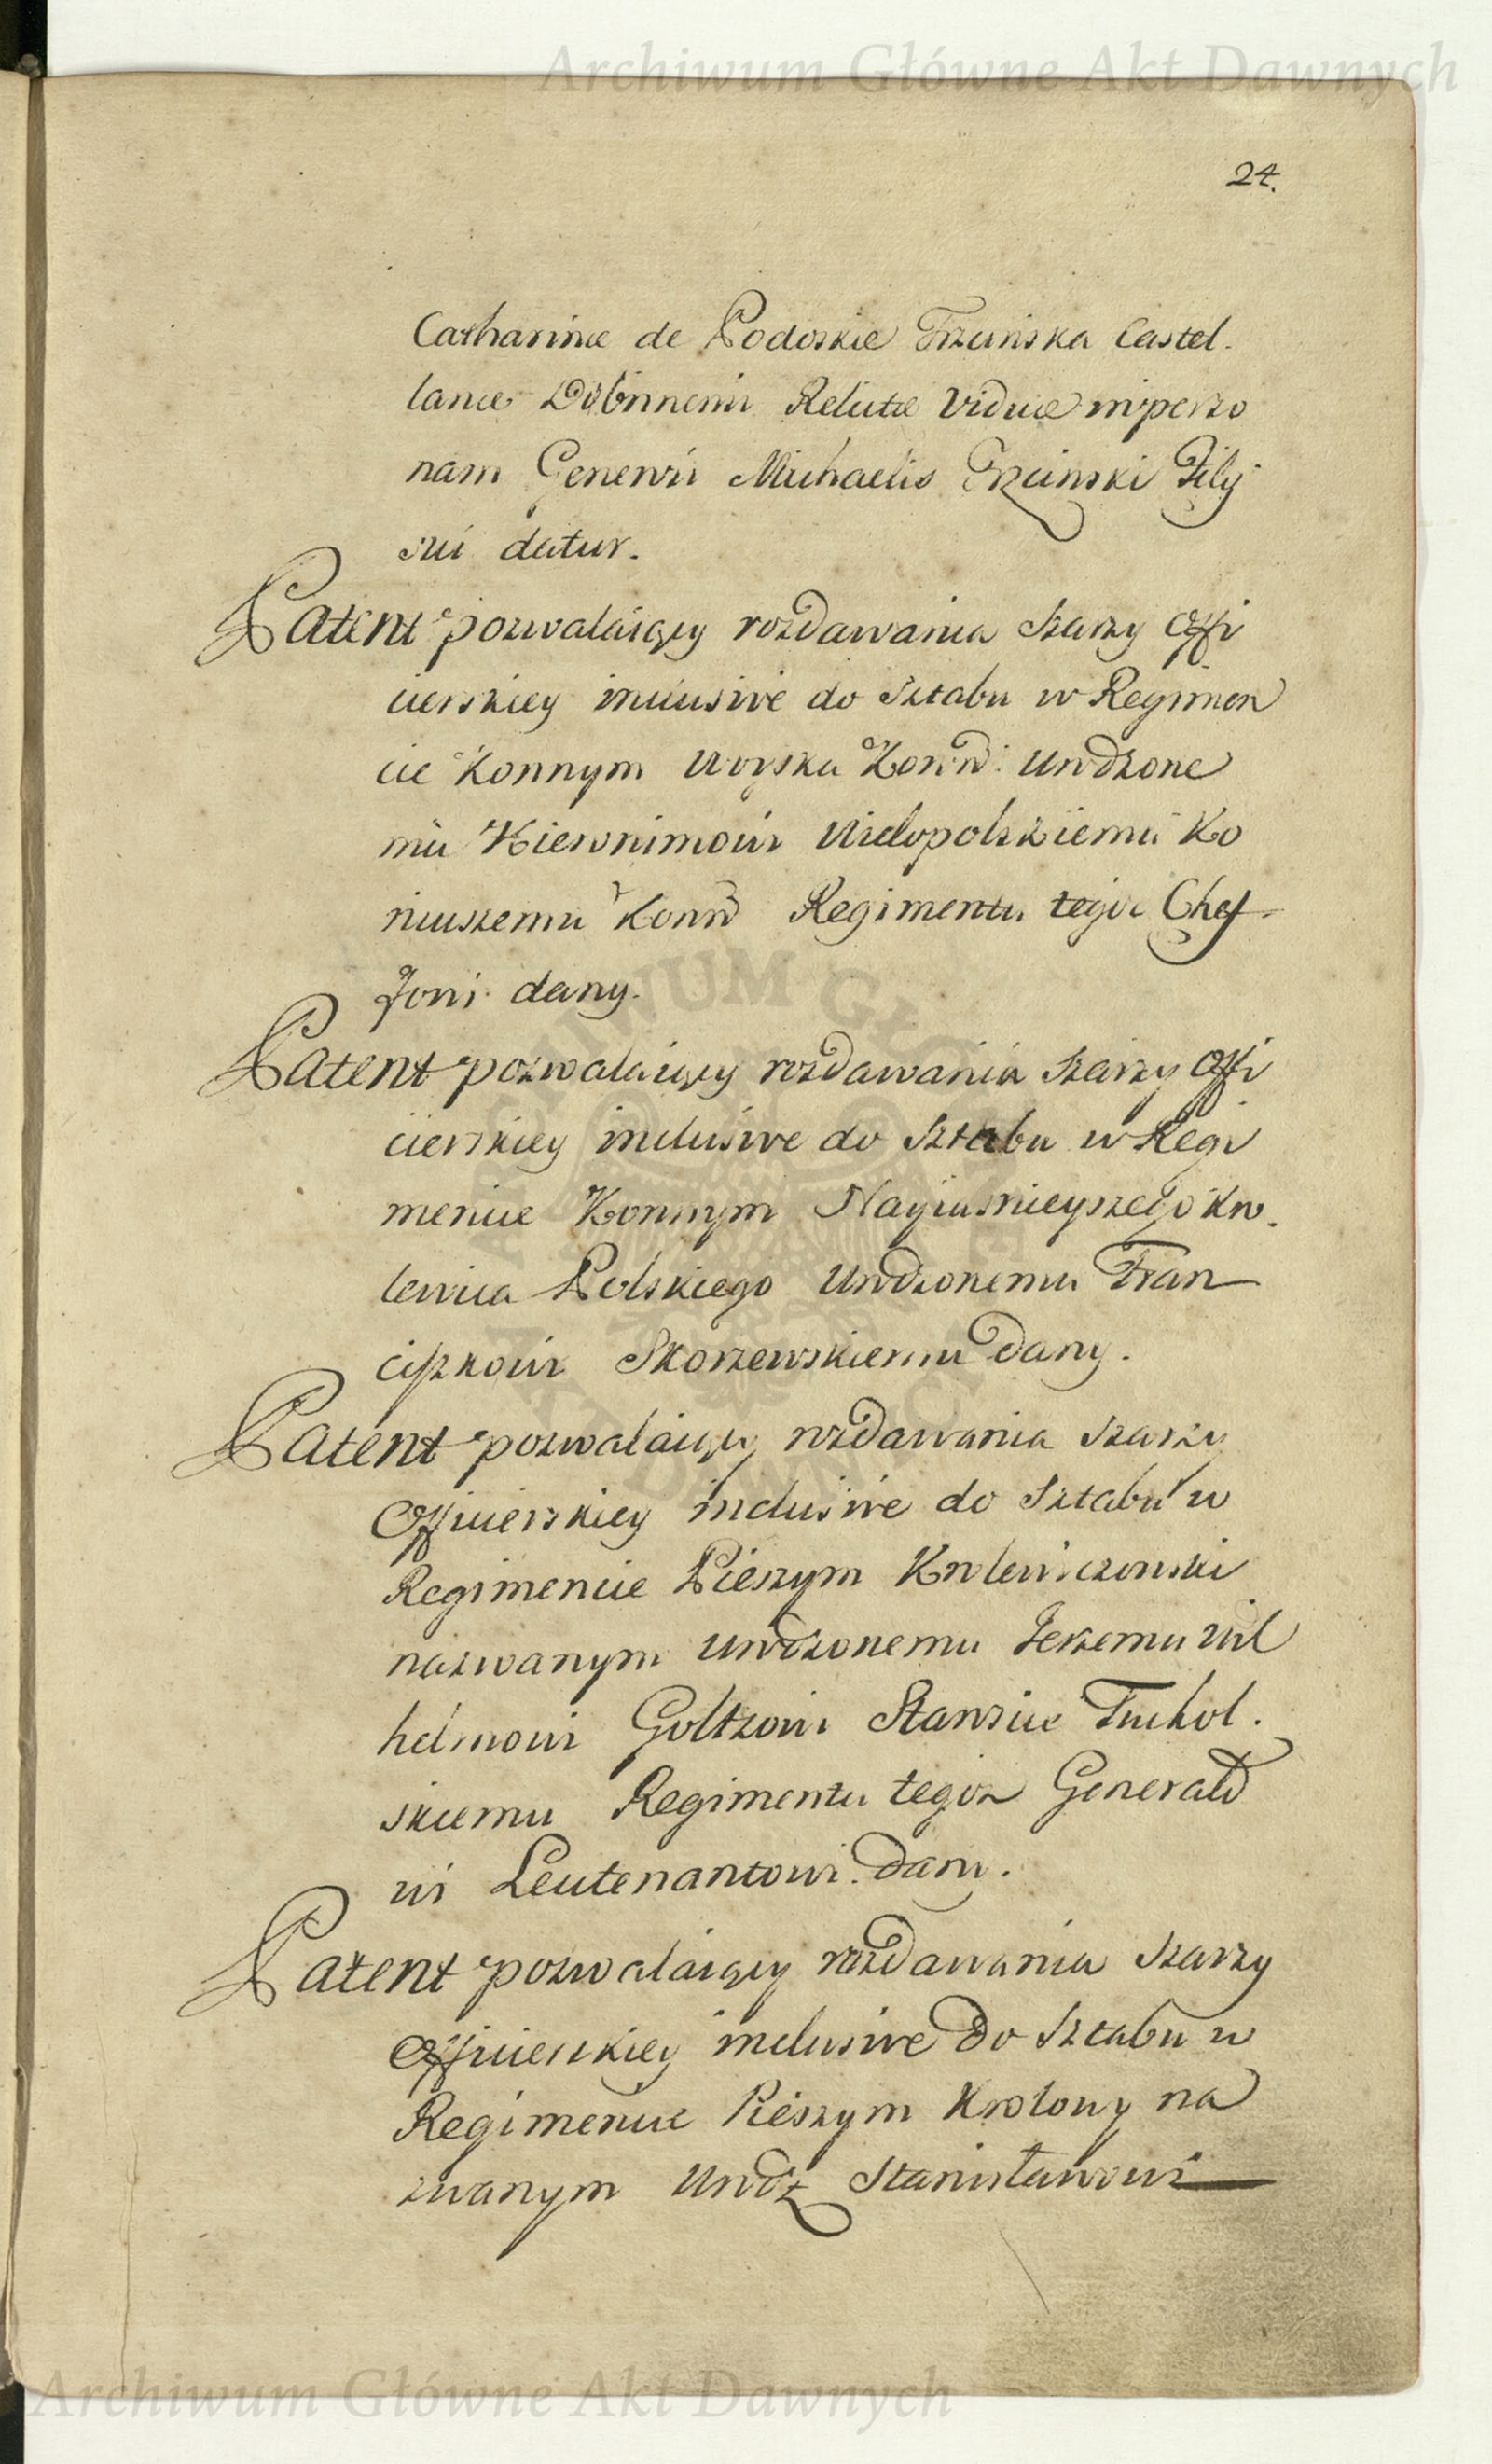 Archiwum Główne Akt Dawnych
24.
Catharinæ de Podoskie Trzcińska Castel.
lanæ Dobrinensi Relictæ Viduæ in perso
nam Generosi Michaelis Trzcinski Filij
sui datur.
Patent pozwalaiący rozdawania szarzy offi
cierskiey inclusive do sztabu w Regimen
cie Konnym Woyska Koron: Urodzone
mu Hieronimowi Wielopolskiemu Ko
niuszemu Koron Regimentu tegoż Chef
fowi dany.
Patent pozwalaiący rozdawania szarzy offi
cierskiey inclusive do Sztabu w Regi
mencie Konnym Nayiasnieyszego Kro.
lewica Polskiego Urodzonemu Fran
ciszkowi Skorzewskiemu dany.
Patent pozwalaiący rozdawania szarzy
Officierskiey inclusive do Sztabu w
Regimencie Pieszym Krolewiczowski
nazwanym Urodzonemu Jerzemu Wil
helmowi Goltzowi Staroście Tuchol.
skiemu Regimentu tegoż Generało
wi Leutenantowi dany.
Patent pozwalaiący rozdawania szarzy
Officierskiey inclusive do Sztabu w
Regimencie Pieszym Krolowy na
zwanym Urodz Stanisławowi
Archiwum Główne Akt Dawnych